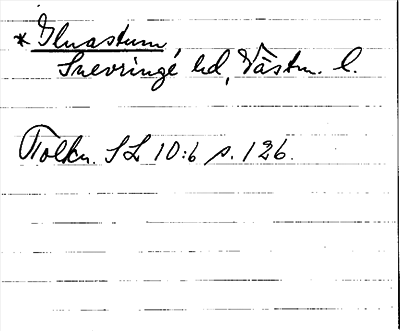 *Ilnastum,
Snevringe hd, Västm. l.
Tolkn. SL 10:6 s. 126.